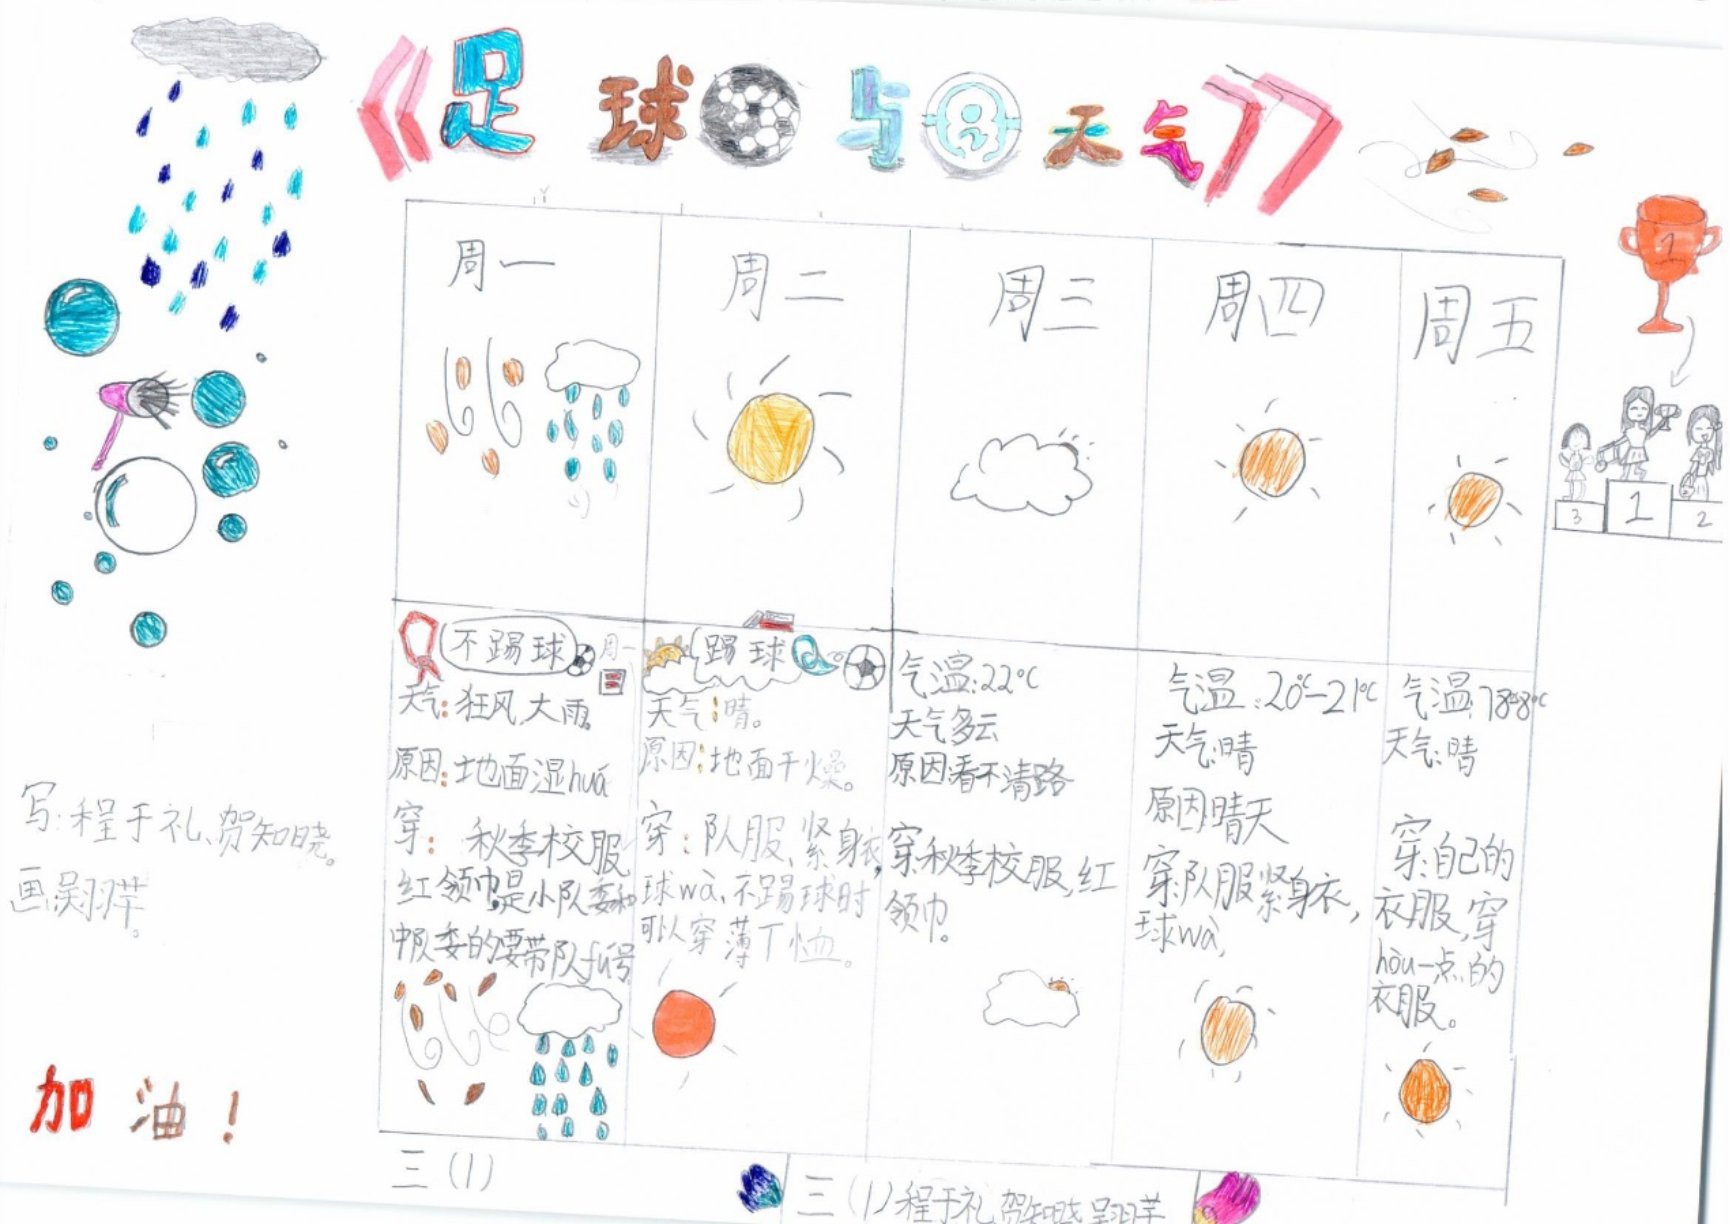 《足球与天气》
周一
周二
周三
周四
周五
1
3
1
2
不踢球
周一
天气:狂风大雨。
原因:地面湿huá
穿: 秋季校服,
红领巾,是小队委和
中队委的要带队fú号
踢球
天气:晴。
原因:地面干燥。
穿:队服、紧身衣,
球wà、不踢球时
可以穿薄T恤。
气温:22℃
天气多云
原因看不清路
穿:秋季校服,红
领巾。
气温:20℃-21℃
天气:晴
原因晴天
穿:队服紧身衣,
球wà,
天气:晴
穿:自己的
衣服,穿
hòu一点的
衣服。
写:程于礼、贺知晓。
画吴羽芊。
加油!
三(1)
三(1)程于礼 贺知晓 吴羽芊